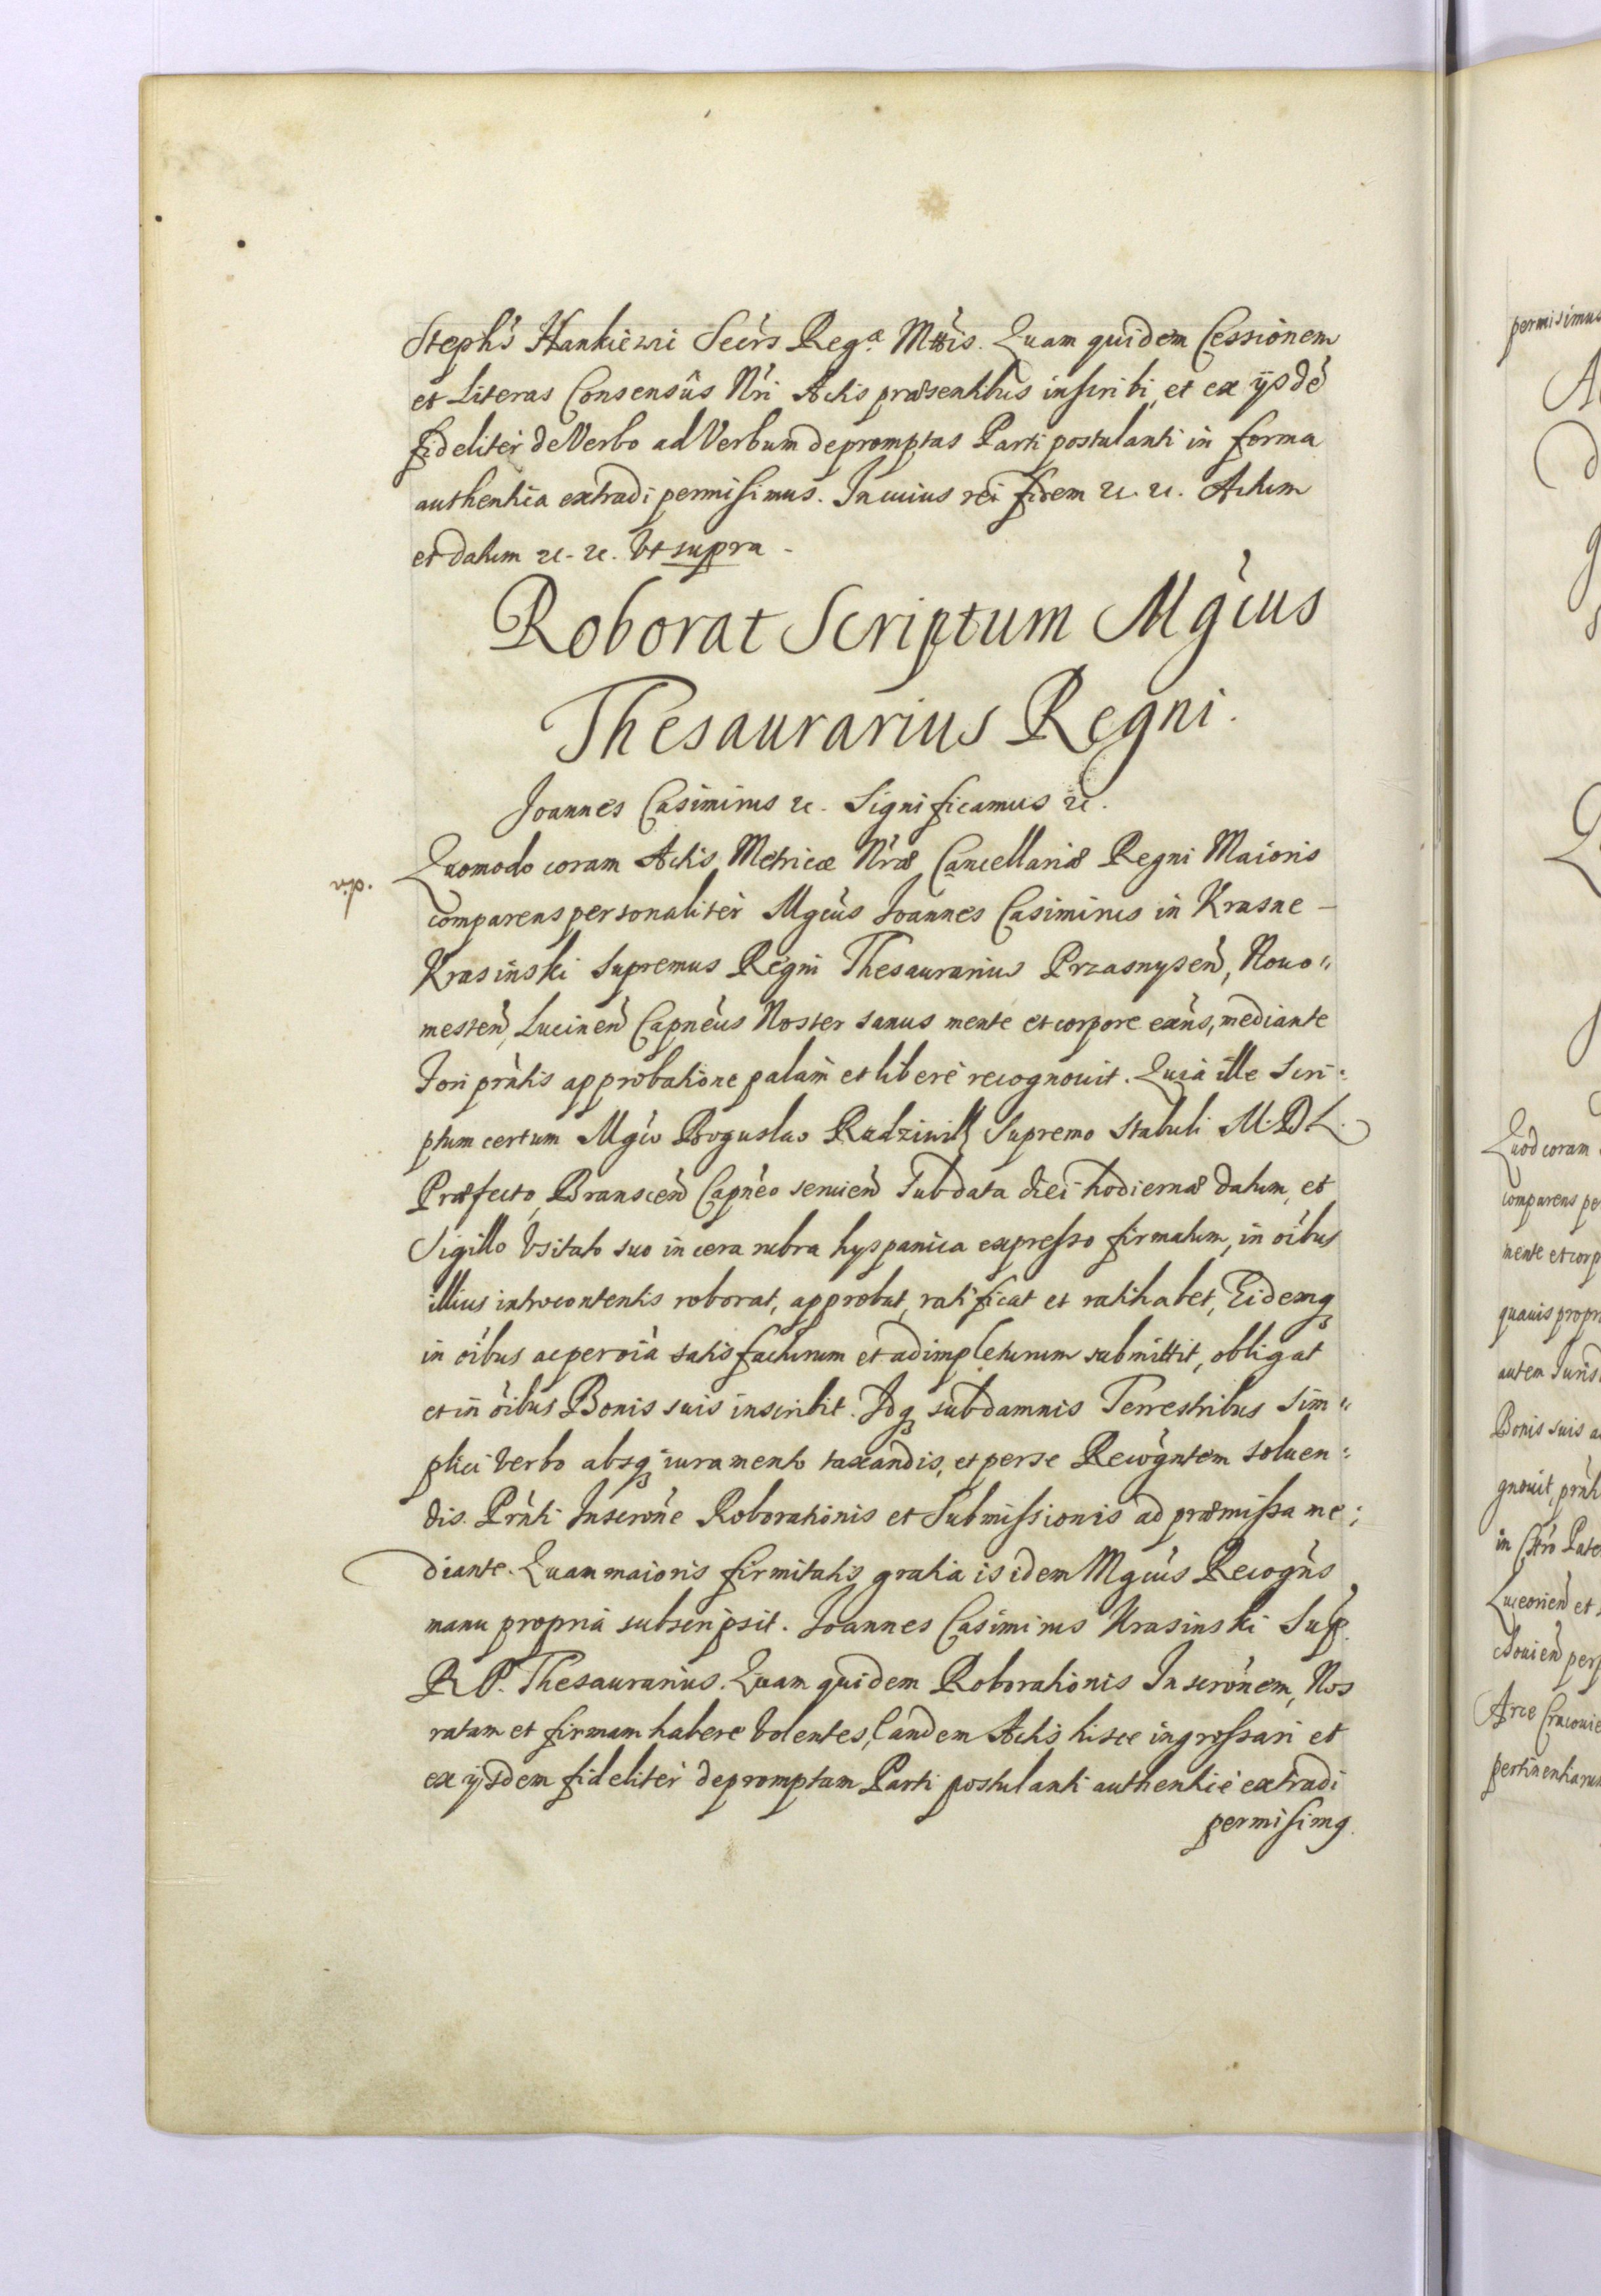 Steph's Hankiewi Secrs Regæ Mttis. Quam quidem Cessionem
et Literas Consensûs Nri Actis præsentibus inscribi, et ex ijsdé
fideliter de Verbo ad Verbum depromptas Parti postulanti in forma
authentica extradi permisimus. In cuius rei fidem &c. &c. Actum
et datum &c. &c. Ut supra.
Roborat Scriptum Mgcus
Thesaurarius Regni.
Joannes Casimirus &c. Significamus &c.
Quomodo coram Actis Metricæ Nræ Cancellariæ Regni Maioris
comparens personaliter Mgcus Joannes Casimirus in Krasne –
Krasinski Supremus Regni Thesaurarius Przasnysen, Nouo"
mesten, Lucinen Capneus Noster sanus mente et corpore exns, mediante
Fori prntis approbatione palam et liberè recognouit. Quia ille Scri:
ptum certum Mgco Boguslao Radziwill Supremo Stabuli M.D.L.
Præfecto, Branscen Capneo seruien Sub data diei hodiernæ datum, et
Sigillo Usitato suo in cera rubra hyspanica expresso firmatum, in oibus
illius introcontentis roborat, approbat, ratificat et ratihabet, Eidemq
in oibus ac per oia satisfacturum et adimpleturum submittit, obligat
et in oibus Bonis suis inscribit. Idq sub damnis Terrestribus Sim"
plici Verbo absq iuramento taxandis, et per se Recogntem soluen:
dis. Prnti Inscrone Roborationis et Submissionis ad præmissa me:
diante. Quam maioris firmitatis gratia is idem Mgcus Recogns
manu propria subscripsit. Joannes Casimirus Krasinski Sup.
R.P. Thesaurarius. Quam quidem Roborationis Inscronem, Nos
ratam et firmam habere Volentes, Eandem Actis hisce ingrossari et
ex ijsdem fideliter depromptam Parti postulanti authenticè extradi
permisimq.
permisimus
Quod coram
comparens pe
mente et corp
quauis propr
autem Juris
Bonis suis a
gnouit, prnt
in Cstro Pate
Luceorien et
Arce Cracouie
pertinentiarum